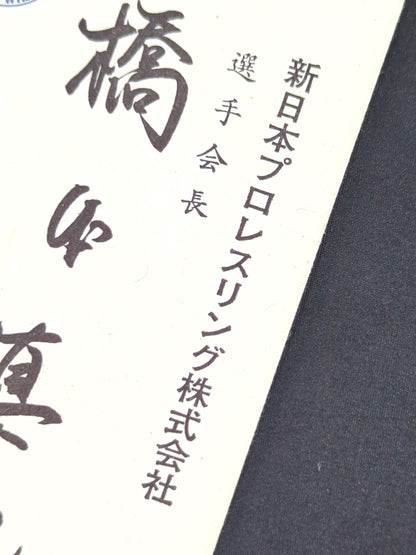 新日本プロレスリング株式会社
選手会長
橋本真